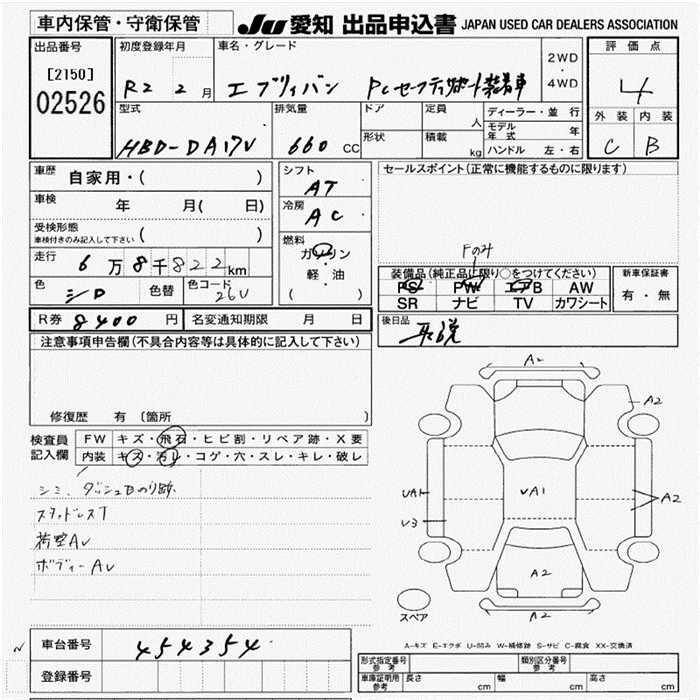 車内保管・守衛保管
JU 愛知 出品申込書 JAPAN USED CAR DEALERS ASSOCIATION
出品番号
[2150]
02526
初度登録年月
R2 2 月
車名・グレード
エブリイバン PCセーフティサポート装着車
2WD
・
4WD
評価点
4
外装 内装
C B
型式
HBD-DA17V
排気量
660 CC
ドア
形状
定員
人
積載
kg
ディーラー・並 行
モデル年式 年
ハンドル 左・右
車歴
自家用・( )
車検
年 月( 日)
受検形態
車検付きのみ記入して下さい ( )
走行
6 万 8 千 822 km
色
シロ
色替
色コード
26U
シフト
AT
冷房
AC
燃料
ガソリン
・
軽・油
( )
セールスポイント(正常に機能するものに限ります)
Fのみ
装備品(純正品に限り○をつけてください)
PS PW エアB AW
SR ナビ TV カワシート
新車保証書
有・無
R券 8400 円
名変通知期限 月 日
後日品
取説
注意事項申告欄(不具合内容等は具体的に記入して下さい)
修復歴 有 〔箇所 〕
検査員
記入欄
FW キズ・飛石・ヒビ割・リペア跡・X要
内装 キズ・汚れ・コゲ・穴・スレ・キレ・破レ
シミ、ダッシュBのり跡
スタッドレスT
荷室AU
ボディーAU
A2
A2
UA1
UA1
A2
U3
A2
A2
スペア
A-キズ E-エクボ U-凹み W-補修跡 S-サビ C-腐食 XX-交換済
車台番号
454354
登録番号
型式指定番号
参考
類別区分番号
参考
車庫証明用
参考
長さ cm
幅 cm
高さ cm